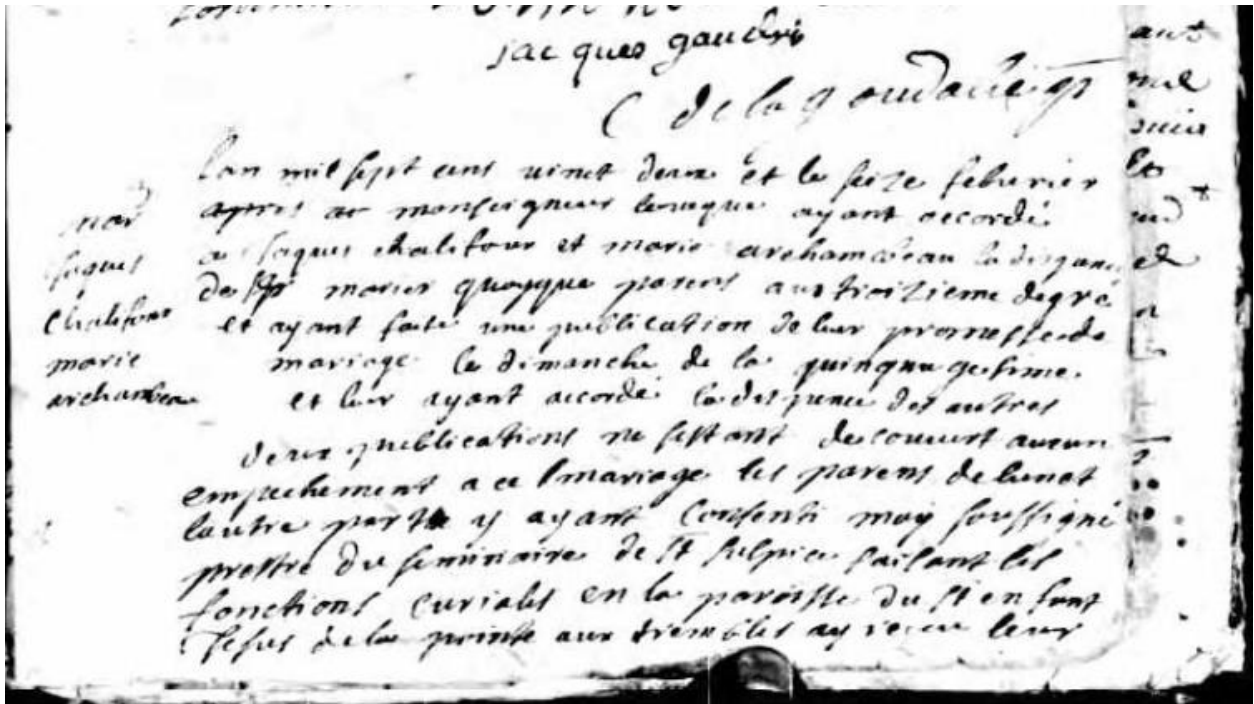 jacques gaudri
C de la goudalie
lan mil sept cens vinct deux et le seize febvrier
apres monseigneur leveque ayant accordé
a jaques chalifour et marie archambeau la dispance
de marier quoyque parens au troizieme degré
et ayant faite une publication de leur promesse de
mariage le dimanche de la quinquagesime
et leur ayant accordé la dispence des autres
deux publications ne sestant decouvert aucun
empechement a ce mariage les parens de lun et
lautre part y ayant consenti moy soussigné
prestre du seminaire de st sulpice faisant les
fonctions curiales en la paroisse du st enfant
Jesus de la pointe aux trembles ay receu leur
mar
jaques
chalifour
marie
archambeau